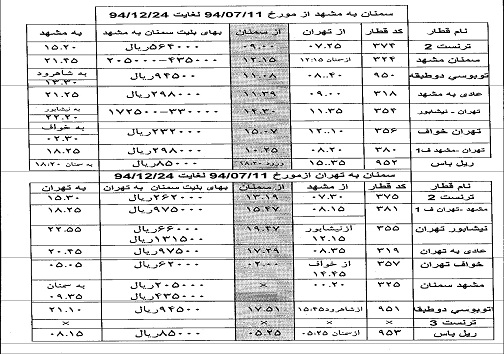 سمنان به مشهد از مورخ 94/07/11 لغایت 94/12/24
نام قطار کد قطار از تهران از سمنان بهای بلیت سمنان به مشهد به مشهد
ترنست 2 ۳۷۴ ۰۷.۲۵ ۰۹.۰۰ ۵۶۴۰۰۰ریال ۱۵.۲۰
سمنان مشهد ۳۲۴ ازسمنان ۱۲:۱۵ ۱۲.۱۵ ۲۰۵۰۰۰-۴۳۵۰۰۰ ۲۱.۴۵
توبوسی دوطبقه ۹۵۰ ۰۸.۴۰ ۱۱.۰۸ ۹۴۵۰۰ریال به شاهرود ۱۳.۳۰
عادی به مشهد ۳۱۸ ۰۹.۰۰ ۱۱.۲۹ ۲۹۸۰۰۰ریال ۲۱.۲۵
تهران - نیشابور ۳۵۴ ۱۱.۳۵ ۱۴.۳۰ ۱۷۲۵۰۰-۳۳۰۰۰۰ به نیشابور ۲۲.۲۰
تهران خواف ۳۵۶ ۱۲.۱۰ ۱۵.۰۷ ۲۳۲۰۰۰ریال به خواف ۰۲.۳۰
تهران -مشهد ف1 ۳۸۰ ۰۸.۲۰ ۱۰.۲۵ ۲۹۸۰۰۰ریال ۱۸.۲۵
ریل باس ۹۵۲ ۱۵.۳۵ ورود ۱۸.۲۰ ۸۵۰۰۰ریال به سمنان ۱۸.۲۰
سمنان به تهران ازمورخ 94/07/11 لغایت 94/12/24
نام قطار کد قطار از مشهد از سمنان بهای بلیت سمنان به تهران به تهران
ترنست 2 ۳۷۵ ۰۷.۳۰ ۱۳.۱۹ ۲۶۲۰۰۰ریال ۱۵.۳۰
مشهد -تهران ف 1 ۳۸۱ ۰۸.۱۵ ۱۵.۴۷ ۹۷۵۰۰۰ریال ۱۸.۲۵
نیشابور تهران ۳۵۵ ازنیشابور ۱۲.۱۵ ۱۹.۴۷ ۶۶۰۰۰ریال ۱۳۱۵۰۰ریال ۲۲.۵۵
عادی به تهران ۳۱۹ ۰۸.۳۵ ۱۷.۲۹ ۹۷۵۰۰ریال ۲۰.۴۵
خواف تهران ۳۵۷ از خواف ۱۴.۴۵ ۰۲.۰۰ ۶۲۰۰۰ریال ۰۵.۰۵
مشهد سمنان ۳۲۵ ۰۰.۲۰ × ۲۰۵۰۰۰ریال ۴۳۵۰۰۰ریال به سمنان ۰۹.۳۵
اتوبوسی دوطبقه ۹۵۱ ازشاهرود۱۵.۴۵ ۱۷.۵۱ ۹۴۵۰۰ریال ۲۱.۱۰
ترنست 3 × × × × ×
ریل باس ۹۵۳ ازسمنان ۰۵.۲۵ ۰۵.۲۵ ۸۵۰۰۰ریال ۰۸.۱۵